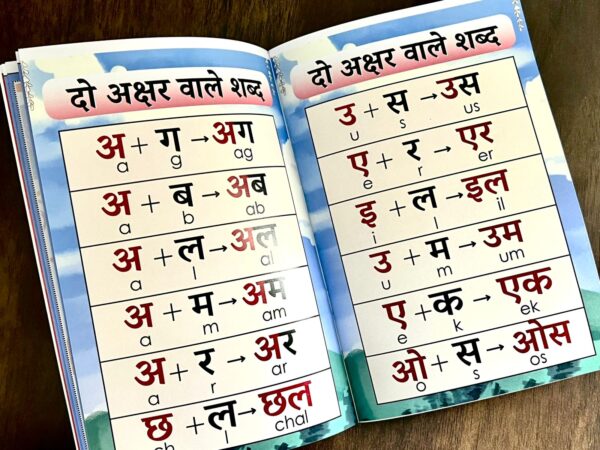 दो अक्षर वाले शब्द
अ + ग → अग
a g ag
अ + ब → अब
a b ab
अ + ल → अल
a l al
अ + म → अम
a m am
अ + र → अर
a r ar
छ + ल → छल
ch l chal
दो अक्षर वाले शब्द
उ + स → उस
u s us
ए + र → एर
e r er
इ + ल → इल
i l il
उ + म → उम
u m um
ए + क → एक
e k ek
ओ + स → ओस
o s os